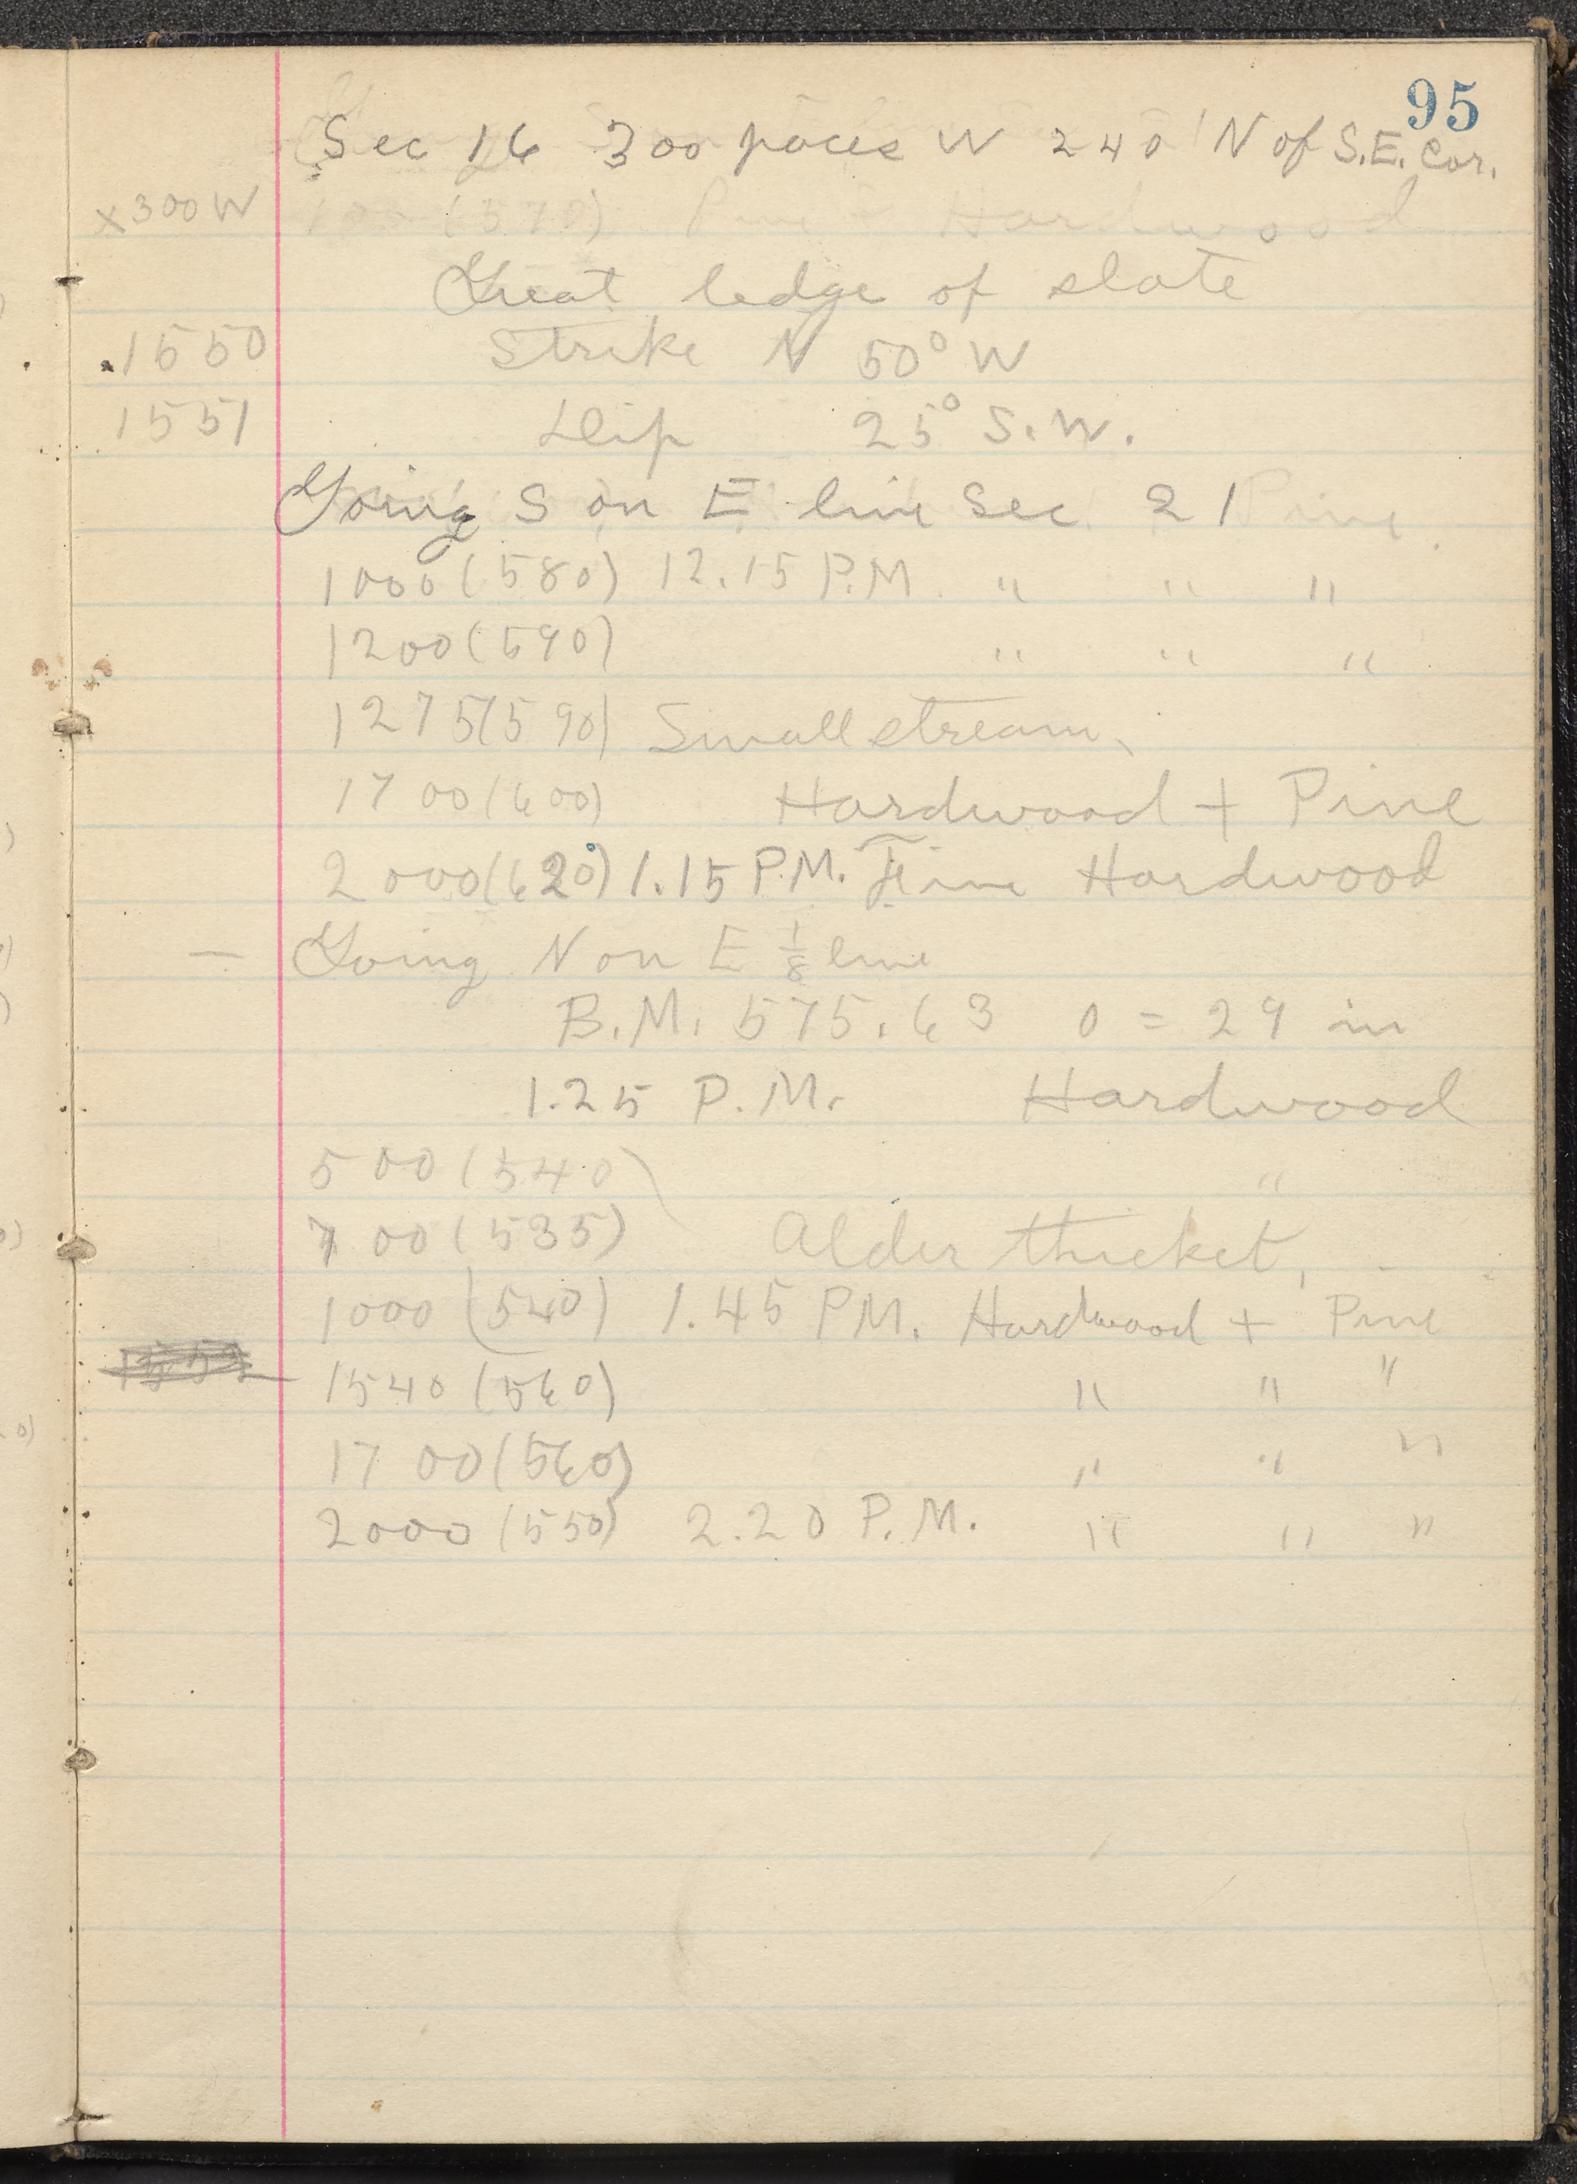 95
Sec 16 300 paces W 240 N of S.E. Cor.
x300W
Great ledge of slate
1550 Strike N 50° W
1551 Dip 25° S.W.
Going S on E line Sec 21
1000 (580) 12.15 P.M. " " "
1200 (590) " " "
1275 (590) Small stream.
1700 (600) Hardwood + Pine
2000 (620) 1.15 P.M. Fine Hardwood
— Going N on E 1/8 line
B.M. 575.63 0 = 29 in
1.25 P.M. Hardwood
500 (540) "
700 (535) Alder thicket.
1000 (540) 1.45 P.M. Hardwood + Pine
1540 (560) " " "
1700 (560) " " "
2000 (550) 2.20 P.M. " " "